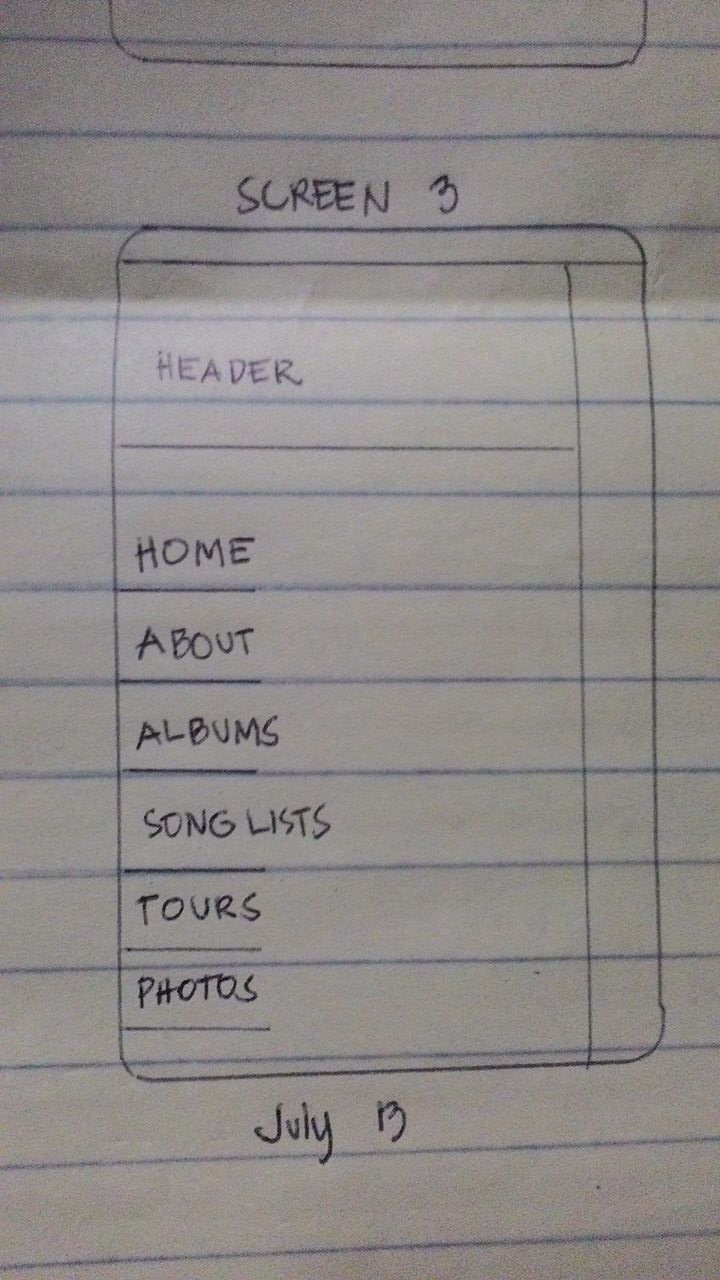 SCREEN 3
HEADER
HOME
ABOUT
ALBUMS
SONG LISTS
TOURS
PHOTOS
July 13